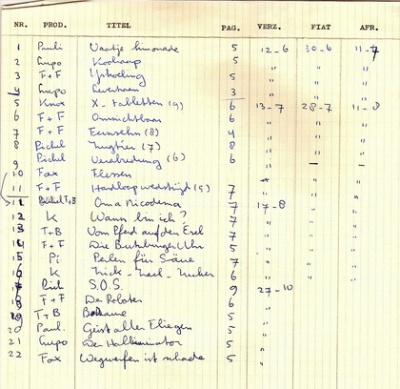 NR. PROD. TITEL PAG. VERZ. FIAT AFR.
1 Pauli Vaatje limonade 5 12-6 30-6 11-7
2 Cupo Kookcup 5 " " "
3 F+F IJskoeling 5 " " "
4 Cupo 3 " " "
5 Knox X-tabletten (9) 6 13-7 28-7 11-8
6 F+F Onzichtbaar 6 " " "
7 F+F Fernsehn (8) 4 " " "
8 Pichel (7) 8 " " "
9 Pichel Verabredung (6) 6 " - -
10 Fax Flessen " "
11 F+F Hardloopwedstrijd (5) 7 " "
11 Pichel T+B Oma Nicodema 7 17-8 "
12 K Wann bin ich? 7 " "
13 T+B Vom Pferd auf den Esel 7 " "
14 F+F Die Uhr 5 " "
15 Pi Perlen für Säue 7 " "
16 K Zick-Zack-Zucker 6 "
17 Pich S.O.S. 9 27-10
18 F+F De Roboter 6 "
19 T+B 5 "
20 Paul. Geist aller Fliegen 5 "
21 Cupo Der Halluzinator 5 "
22 Fax Wegwerfen ist schade 5 "